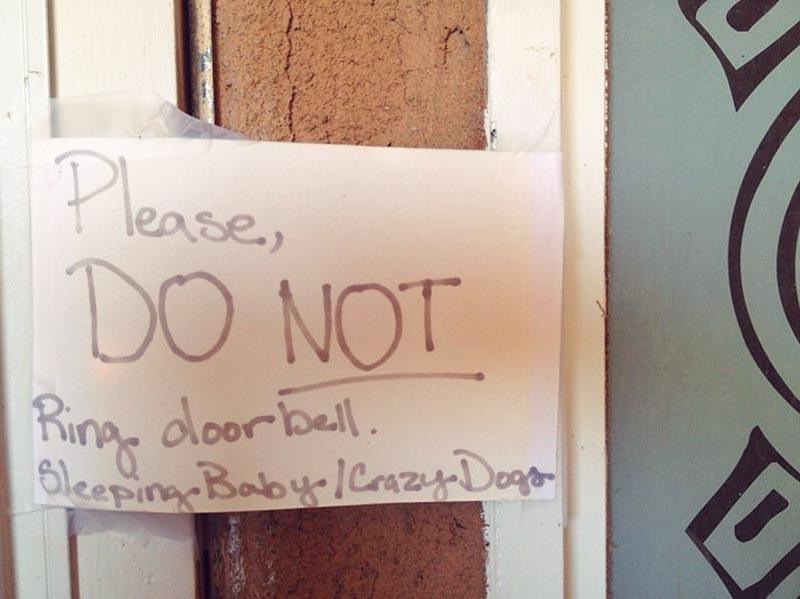 Please,
DO NOT
Ring doorbell.
Sleeping Baby / Crazy Dogs